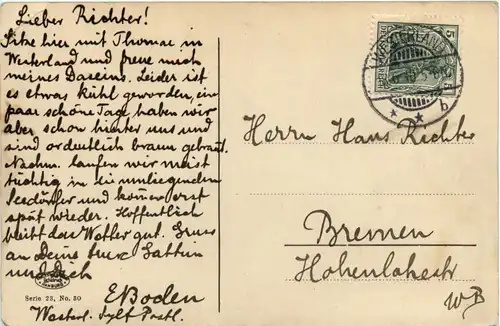 Lieber Richter!
Sitze hier mit Thomae in
Westerland und freue mich
meines Daseins. Leider ist
es etwas kühl geworden, ein
paar schöne Tage haben wir
aber schon hinter uns und
sind ordentlich braun gebrat.
Nachm. laufen wir meist
tüchtig in die umliegenden
Seedörfer und kommen erst
spät wieder. Hoffentlich
bleibt das Wetter gut. Gruss
an Deine Gattin
und Dich
EBoden
Westerl. Sylt Postl.
Serie 23, No. 30
WESTERLAND
5
b
Herrn Hans Richter
Bremen
Hohenlohestr